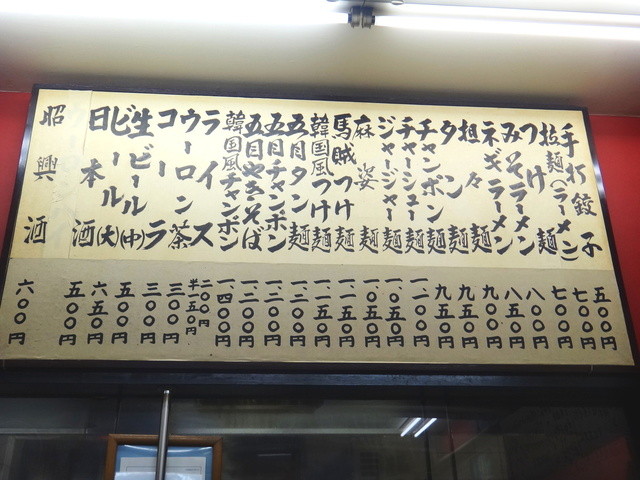 手打餃子 五〇〇円
拉麺(ラーメン) 七〇〇円
つけ麺 七〇〇円
みそラーメン 八〇〇円
ネギラーメン 八五〇円
担々麺 九〇〇円
タン麺 九五〇円
チャンポン麺 九五〇円
チャーシュー麺 一、一〇〇円
ジャージャー麺 一、〇五〇円
麻婆麺 一、〇五〇円
馬賊つけ麺 一、一五〇円
韓国風つけ麺 一、一五〇円
五目タン麺 一、二〇〇円
五目チャンポン 一、二〇〇円
五目やきそば 一、二〇〇円
韓国風チャンポン 一、四〇〇円
ライス 二〇〇円 半一五〇円
ウーロン茶 三〇〇円
コーラ 三〇〇円
生ビール(中) 五〇〇円
ビール(大) 六五〇円
日本酒 五〇〇円
昭興酒 六〇〇円